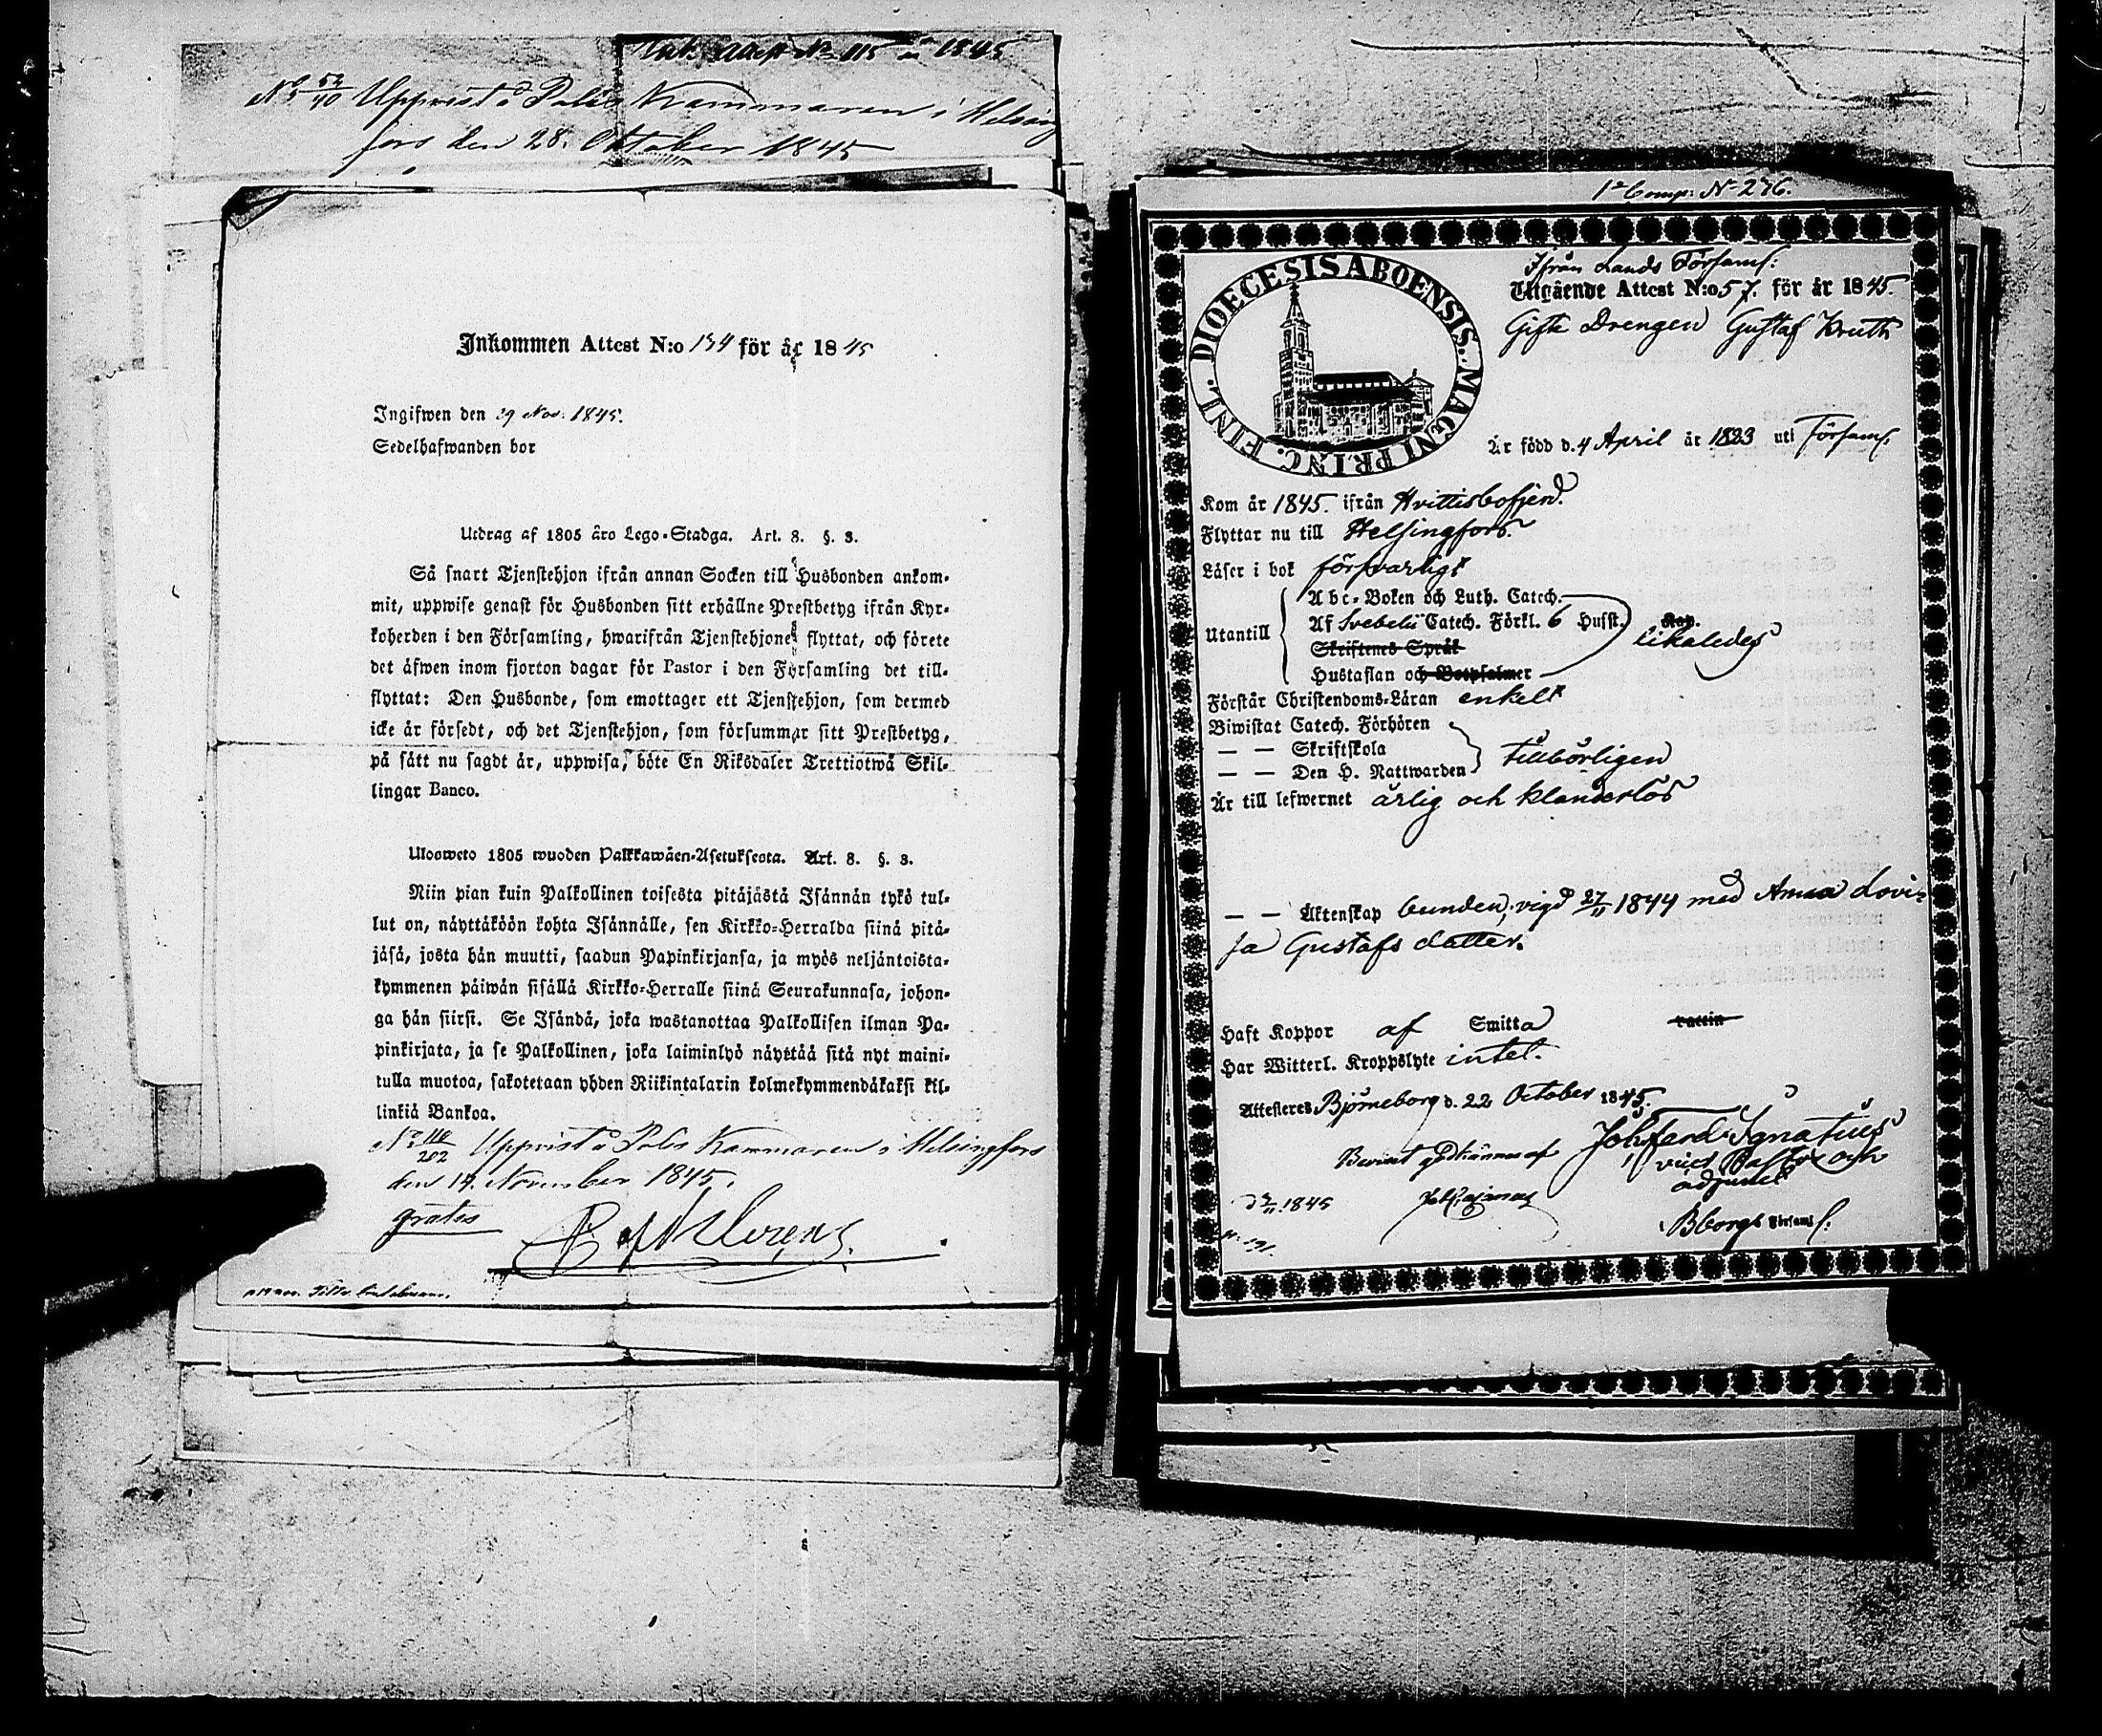 Attest No 115 1845
No 52/40 Uppvist å Polis Kammaren i Helsing
fors den 28. October 1845
Inkommen Attest N:o 134 för år 1845
Ingifwen den 29 Nov. 1845.
Sedelhafwanden bor
Utdrag af 1805 års Lego-Stadga. Art. 8. §. 3.
Så snart Tjenstehjon ifrån annan Socken till Husbonden ankom-
mit, uppwise genast för Husbonden sitt erhållne Prestbetyg ifrån Kyr-
koherden i den Församling, hwarifrån Tjenstehjonet flyttat, och förete
det äfwen inom fjorton dagar för Pastor i den Församling det till-
flyttat: Den Husbonde, som emottager ett Tjenstehjon, som dermed
icke är försedt, och det Tjenstehjon, som försummar sitt Prestbetyg,
på sätt nu sagdt är, uppwisa, böte En Riksdaler Trettiotwå Skil-
lingar Banco.
Ulosweto 1805 wuoden Palkkawäen-Asetuksesta. Art. 8. §. 3.
Niin pian kuin Palkollinen toisesta pitäjästä Isännän tykö tul-
lut on, näyttäköön kohta Isännälle, sen Kirkko-Herralda siinä pitä-
jäsä, josta hän muutti, saadun Papinkirjansa, ja myös neljäntoista-
kymmenen päiwän sisällä Kirkko-Herralle siinä Seurakunnasa, johon-
ga hän siirsi. Se Isändä, joka wastanottaa Palkollisen ilman Pa-
pinkirjata, ja se Palkollinen, joka laiminlyö näyttää sitä nyt maini-
tulla muotoa, sakotetaan yhden Riikintalarin kolmekymmendäkaksi kil-
linkiä Bankoa.
No 116/202 Uppvist å Polis Kammaren i Helsingfors
den 14. November 1845.
gratis
1a Comp: No 276.
DIOECESIS ABOENSIS. MAGNI PRINC. FINL.
Ifrån Lands Församl:
Utgående Attest N:o 57. för år 1845.
Gifte Drengen Gustaf Kruth
Är född d. 4 April år 1823 uti Församl.
Kom år 1845. ifrån Hvittisbofjerd.
Flyttar nu till Helsingfors.
Läser i bok försvarligt
Utantill
Abc-Boken och Luth. Catech.
Af Svebelii Catech. Förkl. 6 Hufst. Kap.
likaledes
Skriftenes Språk
Hustaflan och Botpsalmer
Förstår Christendoms-Läran enkelt
Biwistat Catech. Förhören
— — Skriftskola
tillbörligen
— — Den H. Nattwarden
Är till lefwernet ärlig och klanderlös
— — Äktenskap bunden, vigd 27/11 1844 med Anna Lovi-
sa Gustafs dotter.
Haft Koppor af Smitta
Har Witterl. Kroppslyte intet.
Attesteres Björneborg d. 22 October 1845.
Joh. Ferd. Ignatius
vice Pastor och
adjunct
Beviset godkännes af
1845
Bborgs Församl: